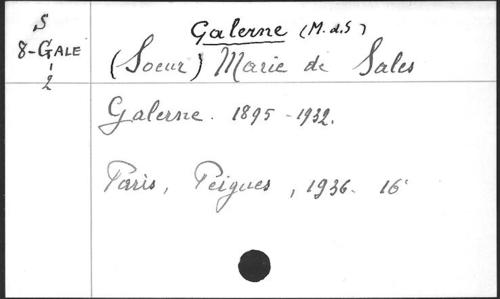 S
8-GALE
2
Galerne (M. d. S)
(Soeur) Marie de Sales
Galerne. 1895-1932.
Paris, Téigues, 1936. 16°